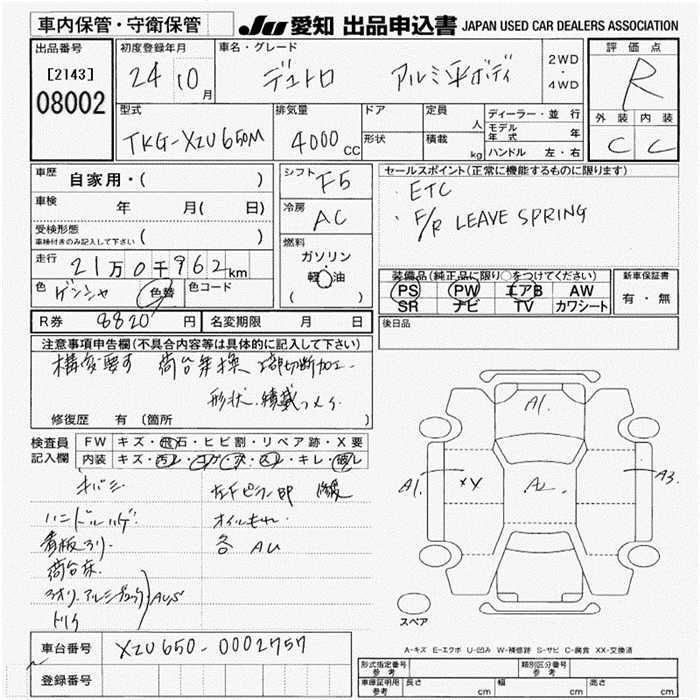 車内保管・守衛保管
JU 愛知 出品申込書 JAPAN USED CAR DEALERS ASSOCIATION
出品番号
[2143]
08002
初度登録年月
24 10月
車名・グレード
デュトロ アルミ平ボディ
2WD
・
4WD
評価点
R
外装 内装
C C
型式
TKG-XZU650M
排気量
4000CC
ドア
形状
定員
人
積載
kg
ディーラー・並行
モデル年式 年
ハンドル 左・右
車歴 自家用・( )
車検 年 月( 日)
受検形態
車検付きのみ記入して下さい ( )
走行 21万0千962km
色 ゲンシャ 色替 色コード
シフト F5
冷房 AC
燃料
ガソリン
軽油
( )
セールスポイント(正常に機能するものに限ります)
・ETC
・F/R LEAVE SPRING
装備品(純正品に限り○をつけてください)
PS PW エアB AW
SR ナビ TV カワシート
新車保証書
有・無
R券 8820円 名変期限 月 日
後日品
注意事項申告欄(不具合内容等は具体的に記入して下さい)
構変要す 荷台乗換 切断加工
形状、積載
修復歴 有 (箇所 )
検査員
記入欄
FW キズ・飛石・ヒビ割・リペア跡・X要
内装 キズ・汚レ・コゲ・穴・スレ・キレ・破レ
ハンドルハゲ
オイルもれ
看板
各 AU
荷台床
A1.
A1. XY A2. A3.
スペア
A-キズ E-エクボ U-凹み W-補修跡 S-サビ C-腐食 XX-交換済
車台番号 XZU650-0002757
登録番号
形式指定番号
参考
類別区分番号
参考
車庫証明用
参考
長さ cm 幅 cm 高さ cm